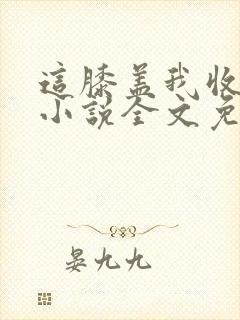 這膝盖我收
小説全文免
晏九九